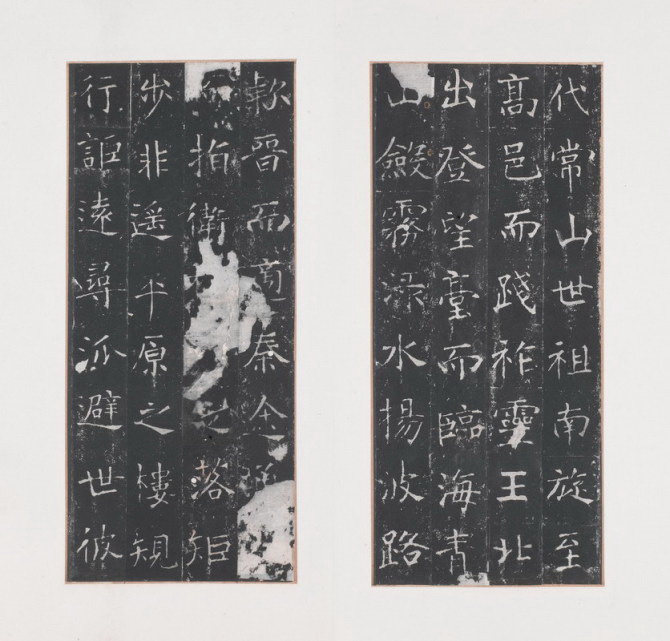 代常山世祖南旋至
髙邑而踐祚靈王北
出登望臺而臨海青
山斂霧淥水揚波路
款晉而適秦途通
指衛之落矩
步非遥平原之樓規
行詎遠尋泒避世彼